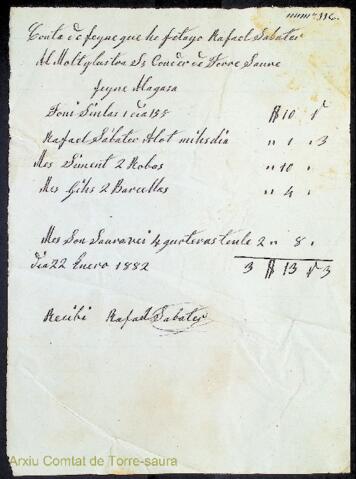 num.º 116
Conta de feyne que he fet a yo Rafael Sabater
Al Molt ylustra Sr Conde de Torre Saura
feyne Alagasa
Toni Sintas 1 dia 1 10
Rafael Sabater Alot mitx dia " 1 " 3
Mes Siment 2 Robas " 10 "
Mes Gihs 2 Barcellas " 4 "
Mes Son Saura vei 4 qurteras teula 2 " 8 "
dia 22 Enero 1882 3 13 3
Recibi Rafael Sabater
Arxiu Comtat de Torre-saura